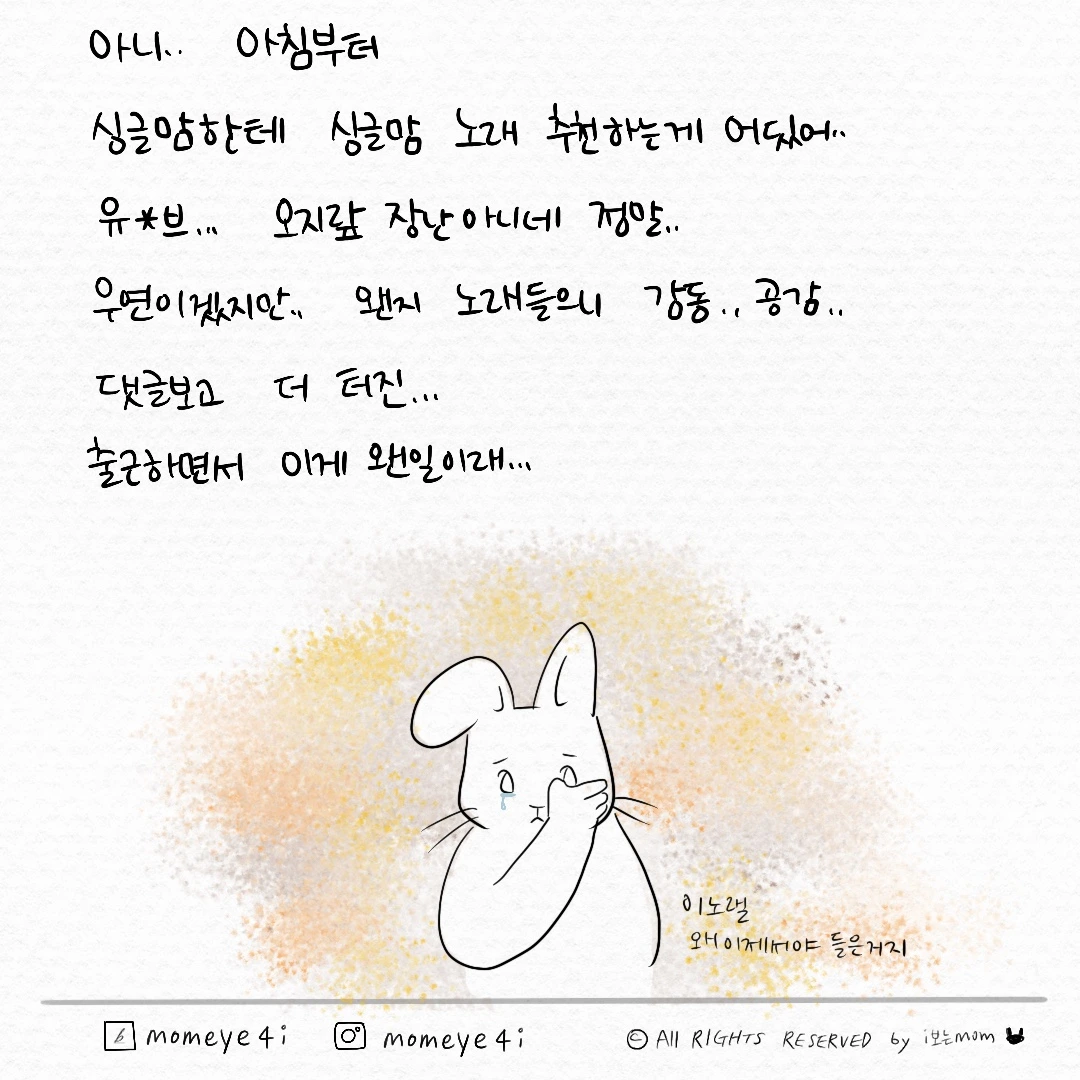 아니.. 아침부터
싱글맘한테 싱글맘 노래 추천하는게 어딨어..
유*브... 오지랖 장난아니네 정말..
우연이겠지만.. 왠지 노래들으니 감동.. 공감..
댓글보고 더 터진...
출근하면서 이게 왠일이래...
이노랠
왜 이제서야 들은거지
b momeye4i momeye4i © All RIGHTS RESERVED by i보는mom